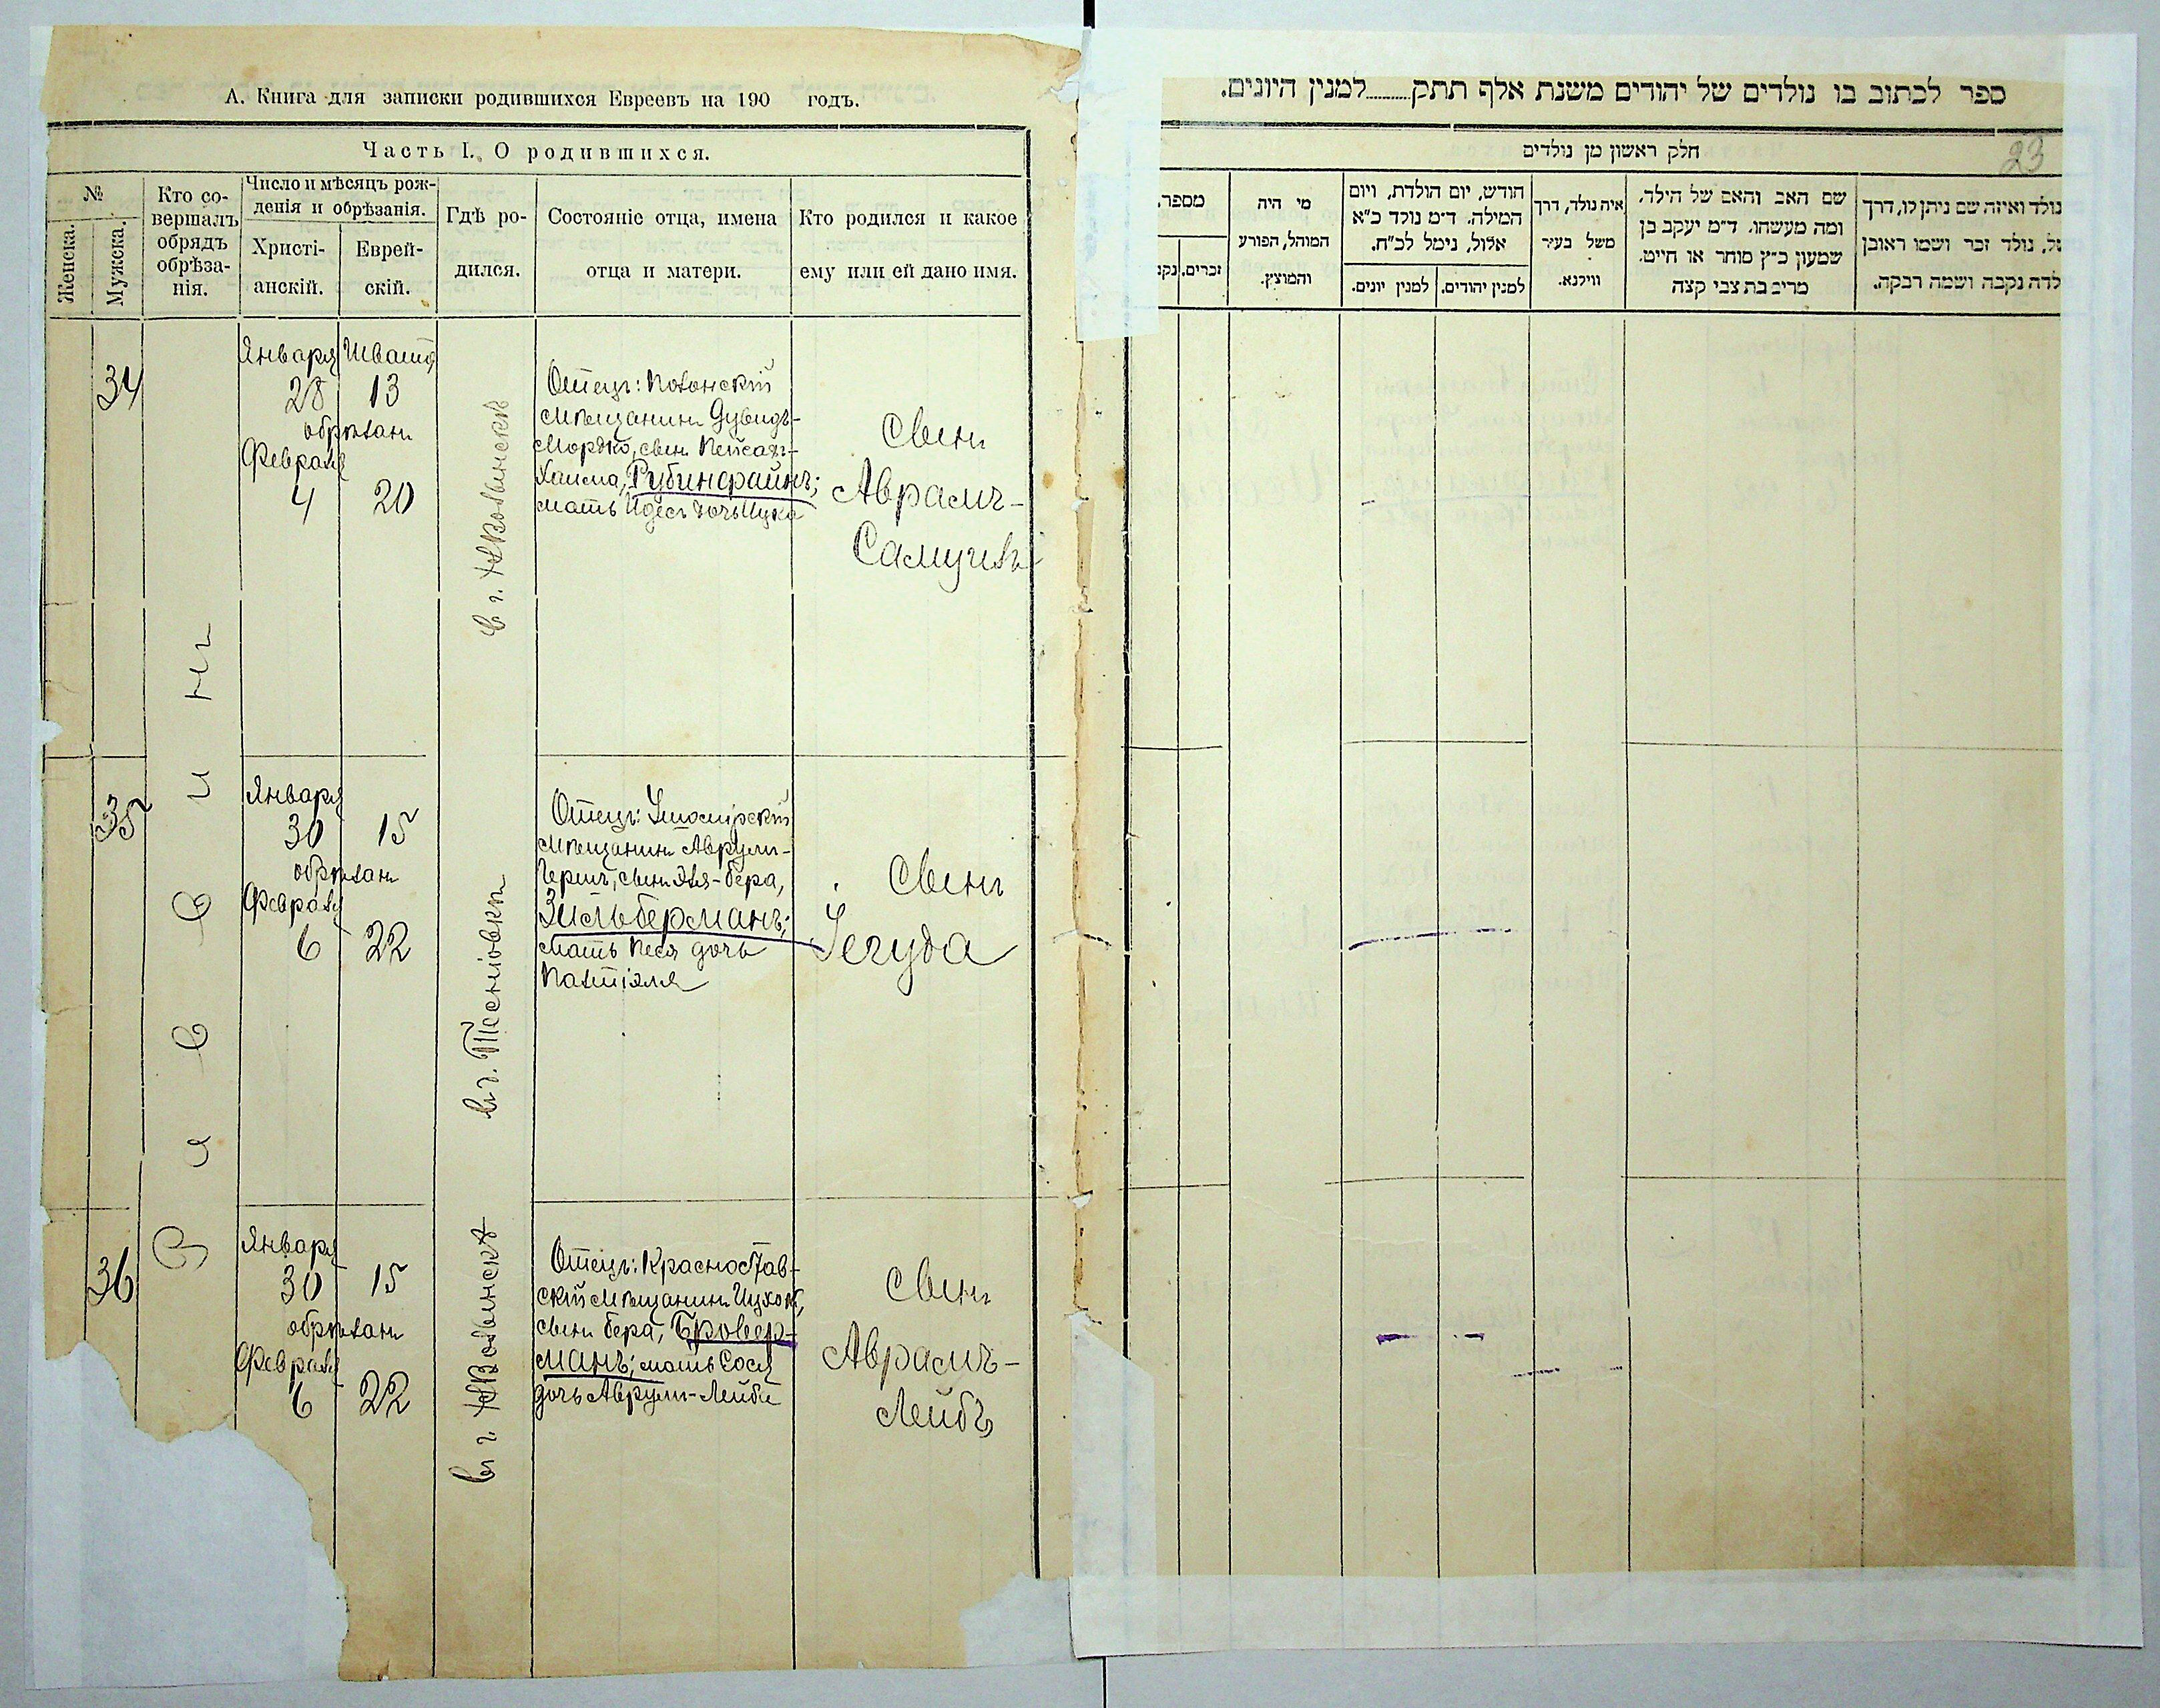 А. Книга для записки родившихся Евреевъ на 190 годъ.
Часть I. О родившихся.
№
Женска.
Мужска.
Кто со-
вершалъ
обрядъ
обрѣза-
нія.
Число и мѣсяцъ рож-
денія и обрѣзанія.
Христі-
анскій.
Еврей-
скій.
Гдѣ ро-
дился.
Состояніе отца, имена
отца и матери.
Кто родился и какое
ему или ей дано имя.
34
Января Швата
28 13
обрѣзанъ
Февраля
4 20
Отецъ: Полонскій
мѣщанинъ Дувидъ-
Мордко, сынъ Пейсахъ-
Хаима, Рубинфайнъ;
мать Идесъ дочь Ицка
Сынъ
Аврамъ-
Самуилъ
35
Января
30 15
обрѣзанъ
Февраля
6 22
Отецъ:
мѣщанинъ Аврумъ-
Гершъ, сынъ Эля-Бера,
Зильберманъ;
мать Песя дочь
Сынъ
Іегуда
36
Января
30 15
обрѣзанъ
Февраля
6 22
Отецъ: Красностав-
скій мѣщанинъ Ицхокъ,
сынъ Бера, Бровер-
манъ; мать Сося
дочь Аврумъ-Лейби
Сынъ
Аврамъ-
Лейбъ
ספר לכתוב בו נולדים של יהודים משנת אלף תתק למנין היונים.
חלק ראשון מן נולדים
23
מספר.
זכרים.
מי היה
המוהל, הפורע
והמוצץ.
חודש, יום הולדת, ויום
המילה. ד״מ נולד כ״א
אלול, נימל לכ״ח.
למנין יונים.
למנין יהודים.
איה נולד, דרך
משל בעיר
ווילנא.
שם האב והאם של הילד,
ומה מעשהו. ד״מ יעקב בן
שמעון כ״ץ סוחר או חייט.
מרים בת צבי קצה
נולד ואיזה שם ניתן לו, דרך
של, נולד זכר ושמו ראובן
לדה נקבה ושמה רבקה.